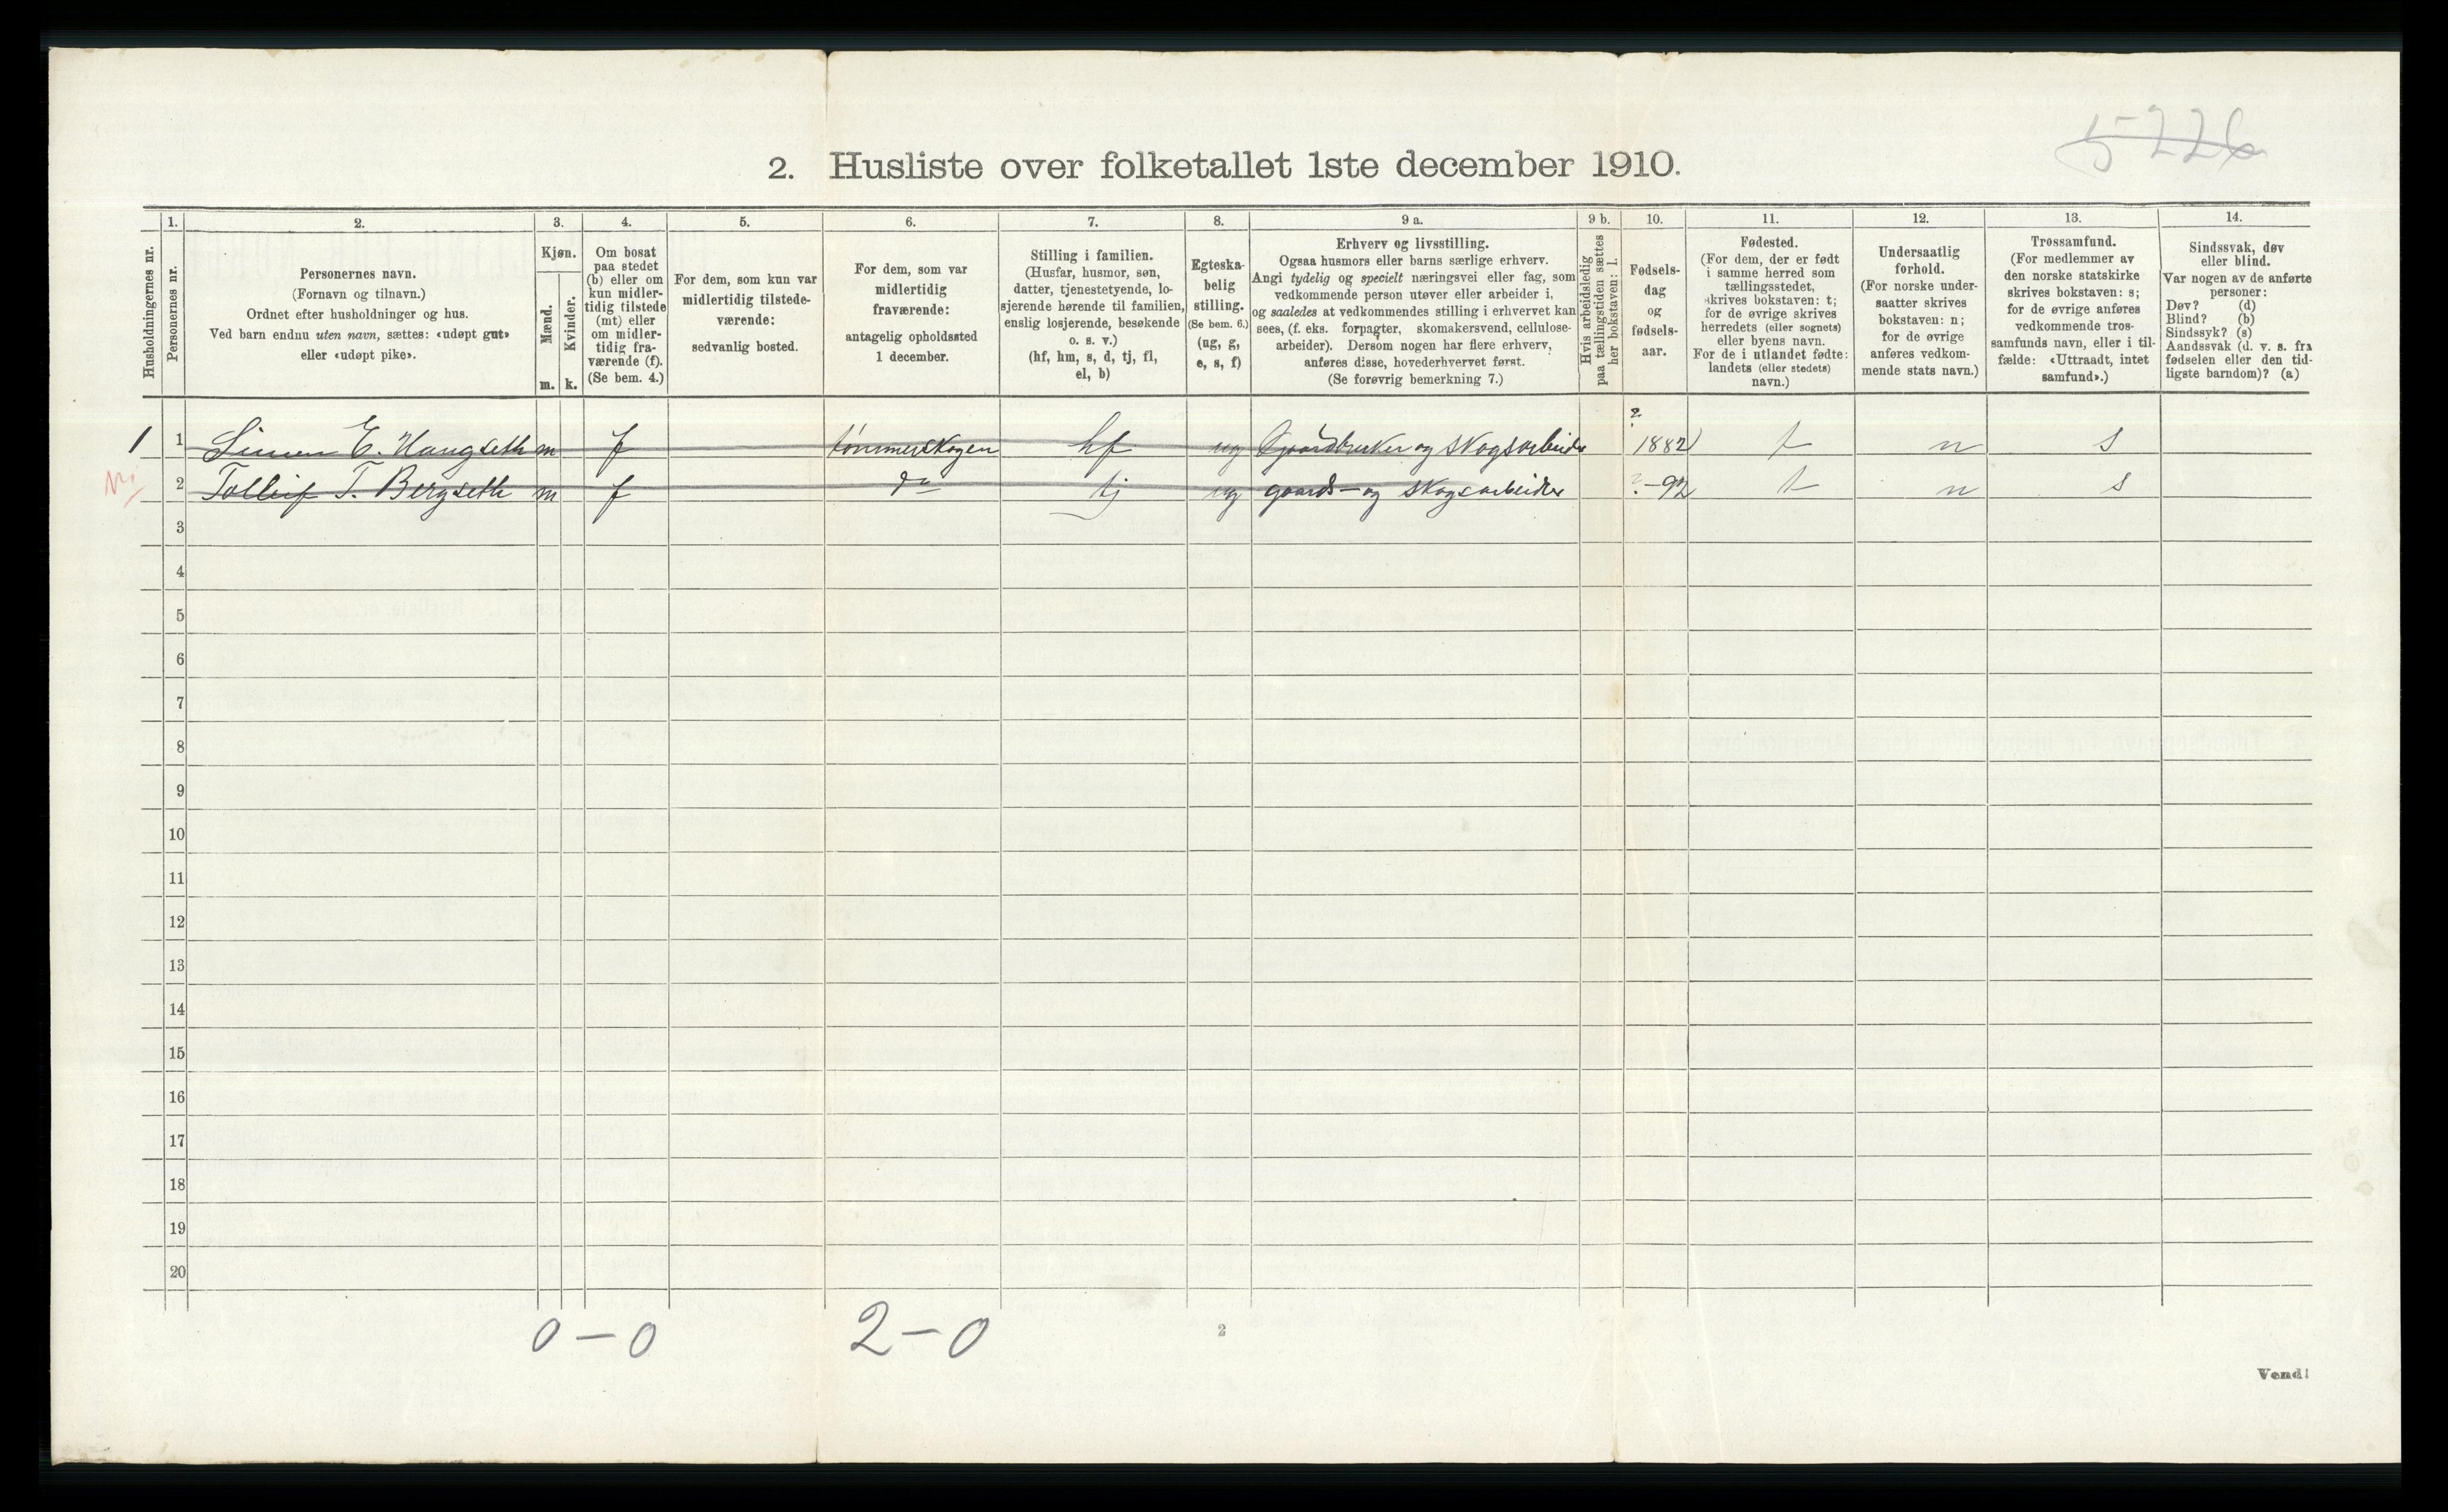 5226
2. Husliste over folketallet 1ste december 1910.
Husholdningernes nr.
1.
Personernes nr.
2.
Personernes navn.
(Fornavn og tilnavn.)
Ordnet efter husholdninger og hus.
Ved barn endnu uten navn, sættes: «udøpt gut»
eller «udøpt pike».
3.
Kjøn.
Mænd.
m.
Kvinder.
k.
4.
Om bosat
paa stedet
(b) eller om
kun midler-
tidig tilstede
(mt) eller
om midler-
tidig fra-
værende (f).
(Se bem. 4.)
5.
For dem, som kun var
midlertidig tilstede-
værende:
sedvanlig bosted.
6.
For dem, som var
midlertidig
fraværende:
antagelig opholdssted
1 december.
7.
Stilling i familien.
(Husfar, husmor, søn,
datter, tjenestetyende, lo-
sjerende hørende til familien,
enslig losjerende, besøkende
o. s. v.)
(hf, hm, s, d, tj, fl,
el, b)
8.
Egteska-
belig
stilling.
(Se bem. 6.)
(ug, g,
e, s, f)
9 a.
Erhverv og livsstilling.
Ogsaa husmors eller barns særlige erhverv.
Angi tydelig og specielt næringsvei eller fag, som
vedkommende person utøver eller arbeider i,
og saaledes at vedkommendes stilling i erhvervet kan
sees, (f. eks. forpagter, skomakersvend, cellulose-
arbeider). Dersom nogen har flere erhverv,
anføres disse, hovederhvervet først.
(Se forøvrig bemerkning 7.)
9 b.
Hvis arbeidsledig
paa tællingstiden sættes
her bokstaven: l.
10.
Fødsels-
dag
og
fødsels-
aar.
11.
Fødested.
(For dem, der er født
i samme herred som
tællingsstedet,
skrives bokstaven: t;
for de øvrige skrives
herredets (eller sognets)
eller byens navn.
For de i utlandet fødte:
landets (eller stedets)
navn.)
12.
Undersaatlig
forhold.
(For norske under-
saatter skrives
bokstaven: n;
for de øvrige
anføres vedkom-
mende stats navn.)
13.
Trossamfund.
(For medlemmer av
den norske statskirke
skrives bokstaven: s;
for de øvrige anføres
vedkommende tros-
samfunds navn, eller i til-
fælde: «Uttraadt, intet
samfund».)
14.
Sindssvak, døv
eller blind.
Var nogen av de anførte
personer:
Døv? (d)
Blind? (b)
Sindssyk? (s)
Aandssvak (d. v. s. fra
fødselen eller den tid-
ligste barndom)? (a)
1 1 Simen E. Haugseth m f tømmerskogen hf ug Gaardbruker og skogsarbeider ? 1882 t n s
2 Tolleif T. Bergseth m f do tj ug gaards- og skogsarbeider ?-92 t n s
3
4
5
6
7
8
9
10
11
12
13
14
15
16
17
18
19
20
0 - 0 2 - 0
2
Vend!